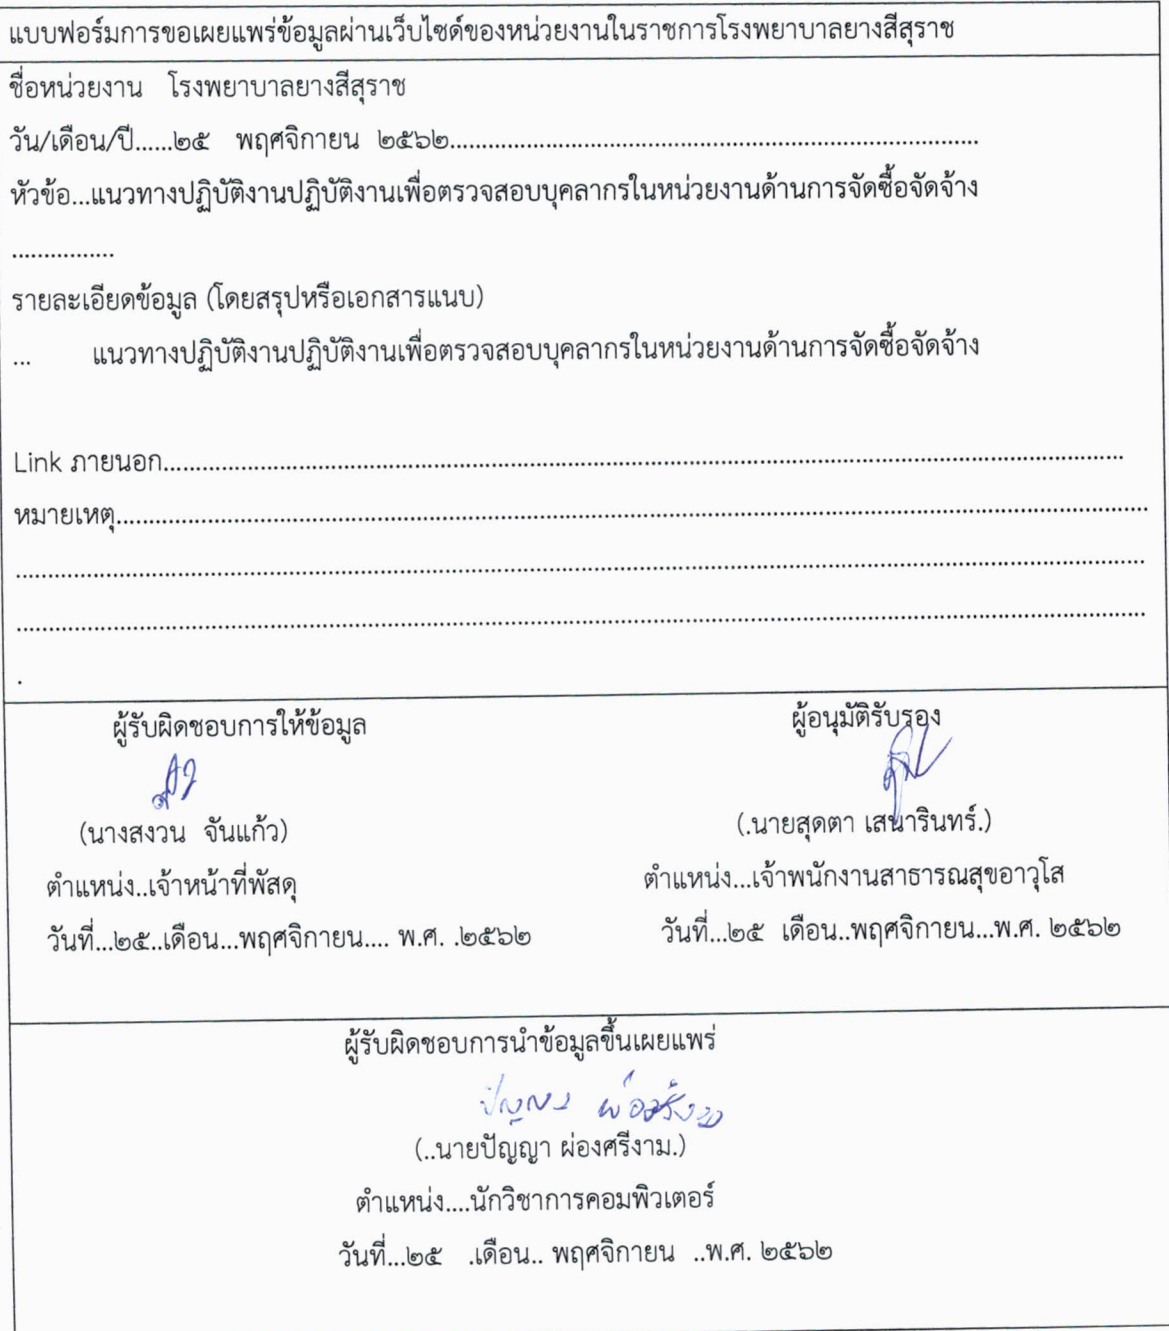 แบบฟอร์มการขอเผยแพร่ข้อมูลผ่านเว็บไซด์ของหน่วยงานในราชการโรงพยาบาลยางสีสุราช
ชื่อหน่วยงาน โรงพยาบาลยางสีสุราช
วัน/เดือน/ปี......๒๕ พฤศจิกายน ๒๕๖๒..................................................................................
หัวข้อ...แนวทางปฏิบัติงานปฏิบัติงานเพื่อตรวจสอบบุคลากรในหน่วยงานด้านการจัดซื้อจัดจ้าง
................
รายละเอียดข้อมูล (โดยสรุปหรือเอกสารแนบ)
... แนวทางปฏิบัติงานปฏิบัติงานเพื่อตรวจสอบบุคลากรในหน่วยงานด้านการจัดซื้อจัดจ้าง
Link ภายนอก....................................................................................................................................................
หมายเหตุ................................................................................................................................................................
................................................................................................................................................................................
................................................................................................................................................................................
.
ผู้รับผิดชอบการให้ข้อมูล
(นางสงวน จันแก้ว)
ตำแหน่ง..เจ้าหน้าที่พัสดุ
วันที่...๒๕..เดือน...พฤศจิกายน.... พ.ศ. .๒๕๖๒
ผู้อนุมัติรับรอง
(.นายสุดตา เสนารินทร์.)
ตำแหน่ง...เจ้าพนักงานสาธารณสุขอาวุโส
วันที่...๒๕ เดือน..พฤศจิกายน...พ.ศ. ๒๕๖๒
ผู้รับผิดชอบการนำข้อมูลขึ้นเผยแพร่
ปัญญา ผ่องศรีงาม
(..นายปัญญา ผ่องศรีงาม.)
ตำแหน่ง....นักวิชาการคอมพิวเตอร์
วันที่...๒๕ .เดือน.. พฤศจิกายน ..พ.ศ. ๒๕๖๒